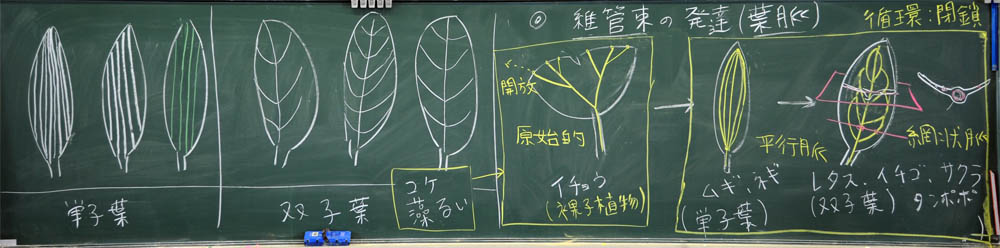 単子葉
双子葉
コケ
藻るい
◎ 維管束の発達(葉脈)
循環:閉鎖
開放
原始的
イチョウ
(裸子植物)
平行脈
ムギ、ネギ
(単子葉)
網状脈
レタス、イチゴ、サクラ
(双子葉) タンポポ